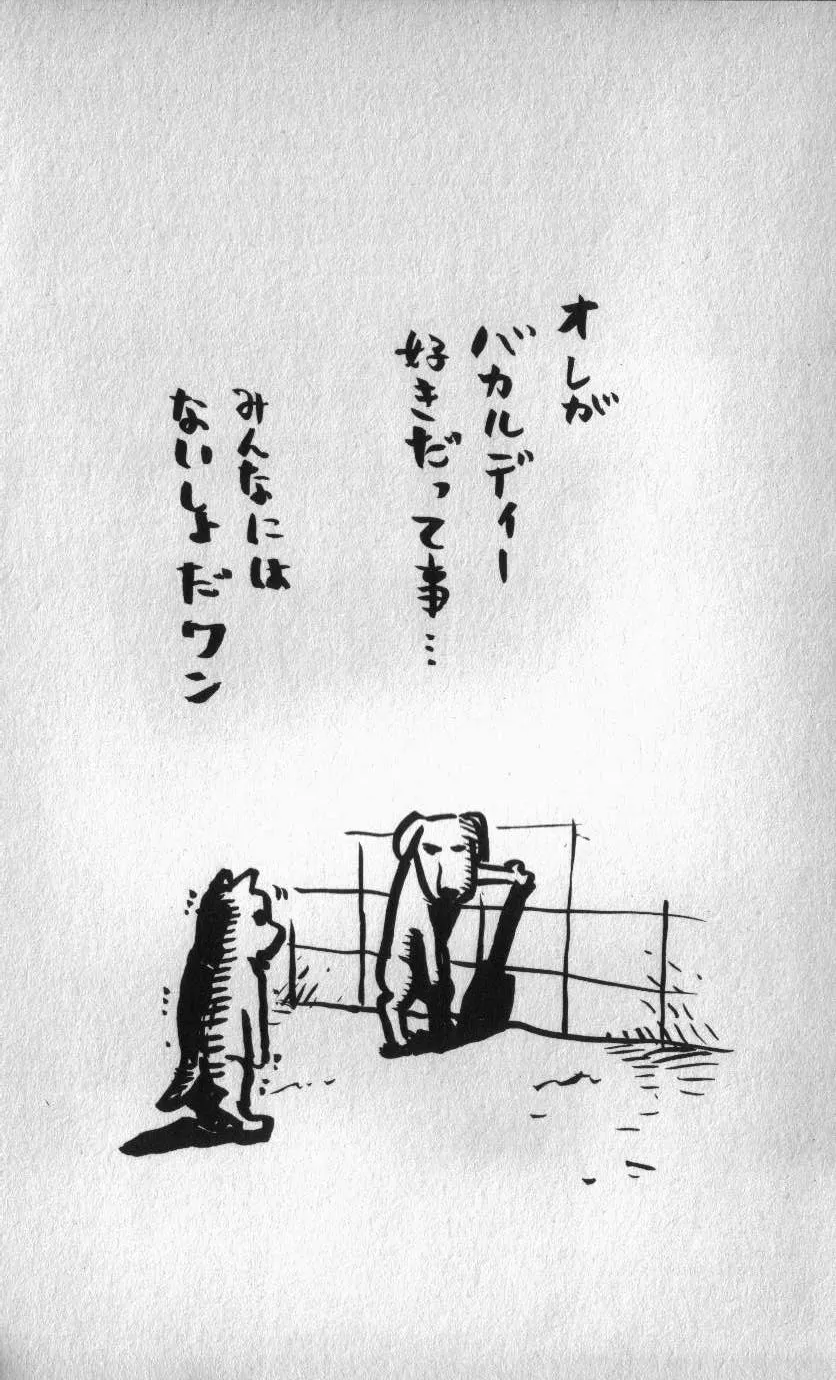 オレが
バカルディー
好きだって事…
みんなには
ないしょだワン